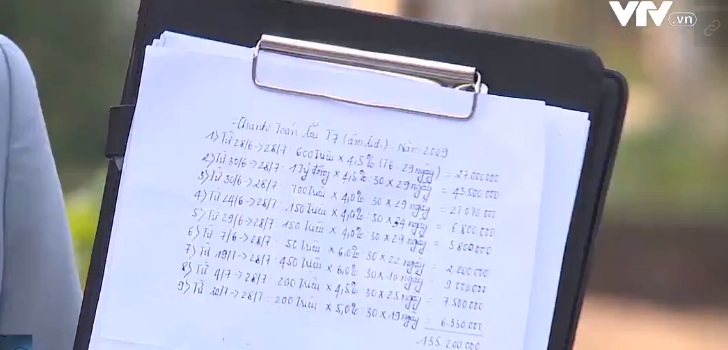 VTV.vn
Thanh Toán lãi T7 (âm lịch). Năm 2009
1) Từ 28/6 → 28/7 : 600 triệu × 4,5% (T6 : 29 ngày) = 27.000.000
2) Từ 30/6 → 28/7 : 1 Tỷ đồng × 4,5% : 30 × 29 ngày = 43.500.000
3) Từ 30/6 → 28/7 : 700 triệu × 4,0% : 30 × 29 ngày =
4) Từ 24/6 → 28/7 : 150 triệu × 4,0% : 30 × 34 ngày = 6.800.000
5) Từ 29/6 → 28/7 : 150 triệu × 4,0% : 30 × 29 ngày = 5.800.000
6) Từ 7/6 → 28/7 : 50 triệu × 6,0% : 30 × 22 ngày = 2.200.000
7) Từ 19/7 → 28/7 : 450 triệu × 6,0% : 30 × 10 ngày = 9.000.000
8) Từ 4/7 → 28/7 : 200 triệu × 4,5% : 30 × 25 ngày = 7.500.000
9) Từ 10/7 → 28/7 : 200 triệu × 5,0% : 30 × 19 ngày = 6.350.000
135.200.000